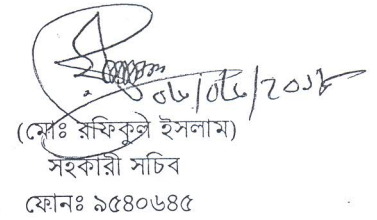 ০৮/০৮/২০১৮
(মোঃ রফিকুল ইসলাম)
সহকারী সচিব
ফোনঃ ৯৫৪০৬৪৫